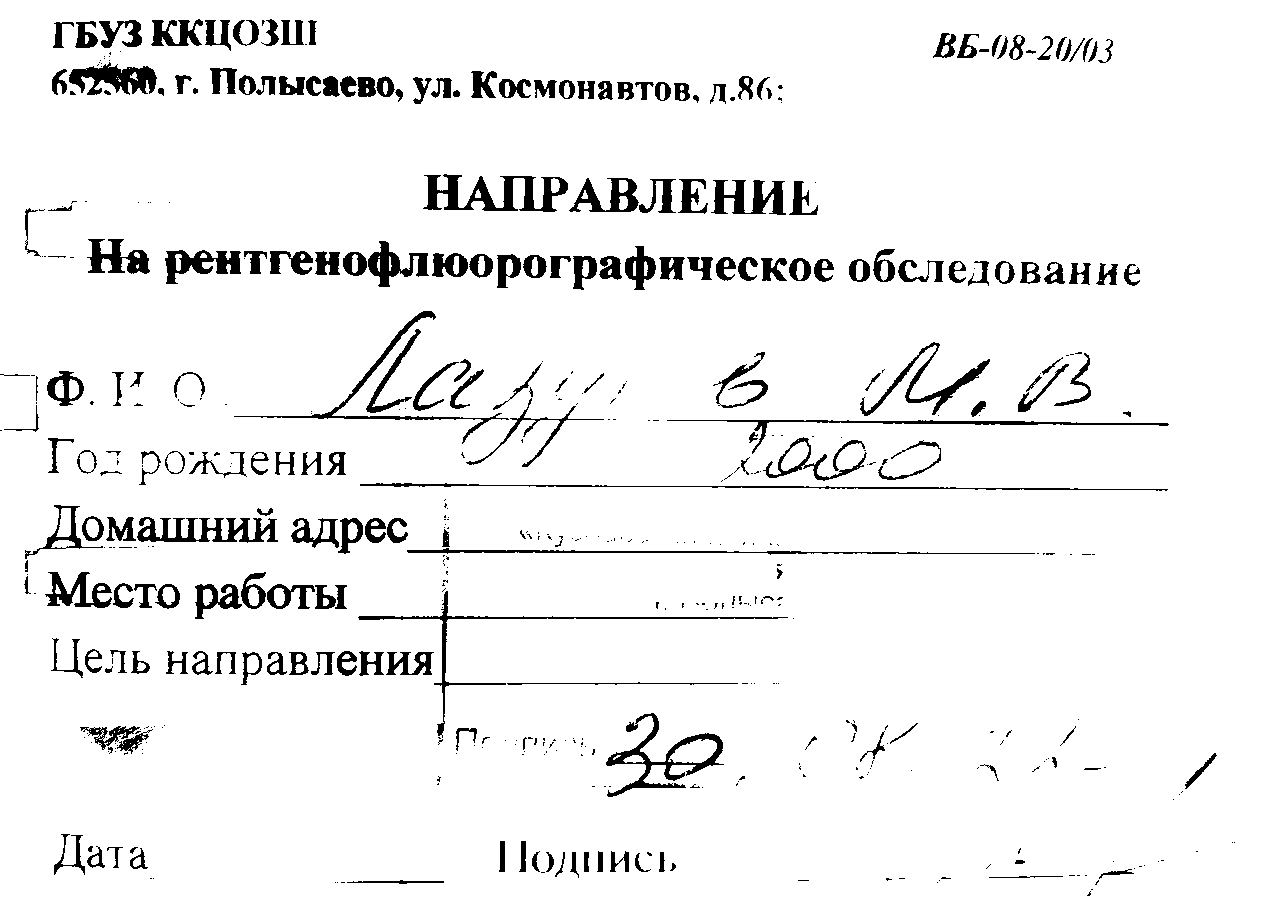 ГБУЗ ККЦОЗШ ВБ-08-20/03
652560, г. Полысаево, ул. Космонавтов, д.86;
НАПРАВЛЕНИЕ
На рентгенофлюорографическое обследование
Ф. И О. М. В.
Год рождения 2000
Домашний адрес
Место работы
Цель направления
Подпись 30.
Дата Подпись